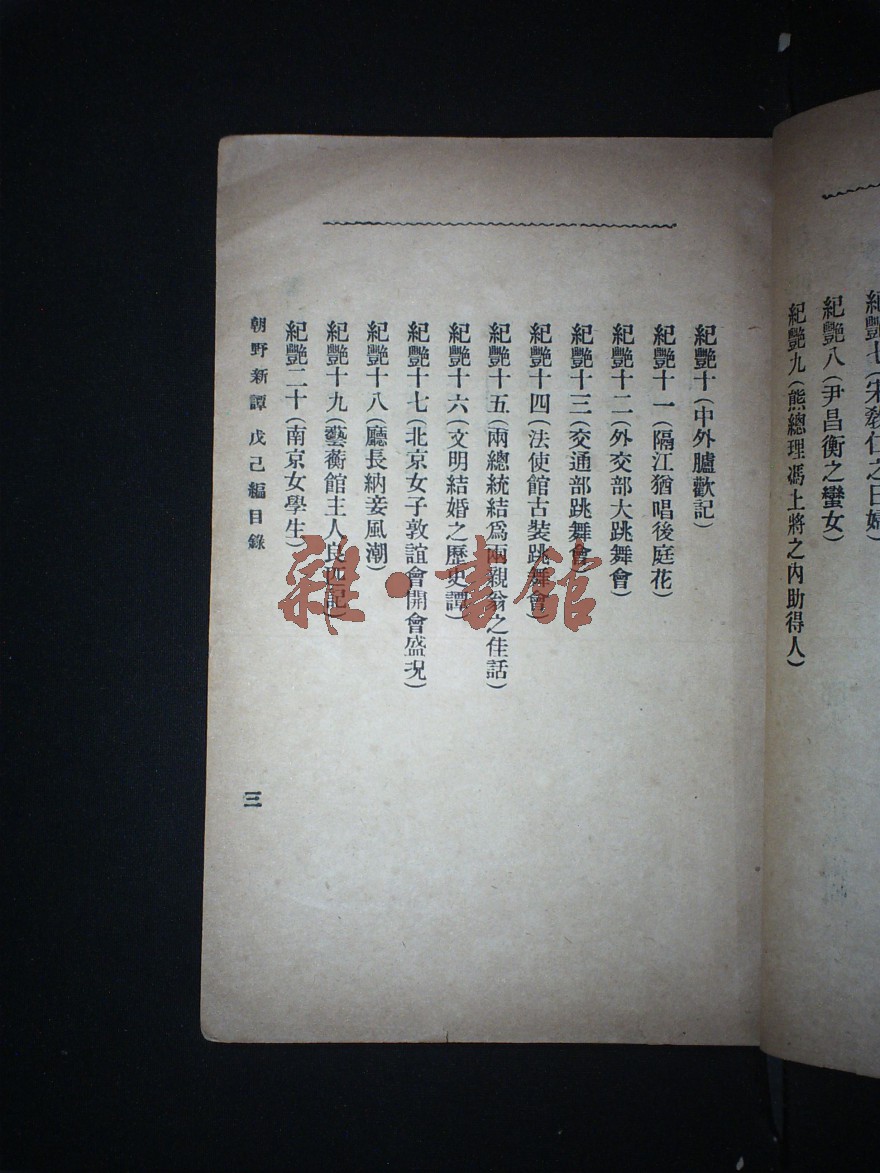 紀艷七(宋敎仁之日婦)
紀艷八(尹昌衡之蠻女)
紀艷九(熊總理馮上將之內助得人)
紀艷十(中外臚歡記)
紀艷十一(隔江猶唱後庭花)
紀艷十二(外交部大跳舞會)
紀艷十三(交通部跳舞會)
紀艷十四(法使館古裝跳舞會)
紀艷十五(兩總統結爲兩親翁之佳話)
紀艷十六(文明結婚之歷史譚)
紀艷十七(北京女子敦誼會開會盛況)
紀艷十八(廳長納妾風潮)
紀艷十九(藝蘅館主人良匹配)
紀艷二十(南京女學生)
朝野新譚 戊己編目錄
三
雜·書館